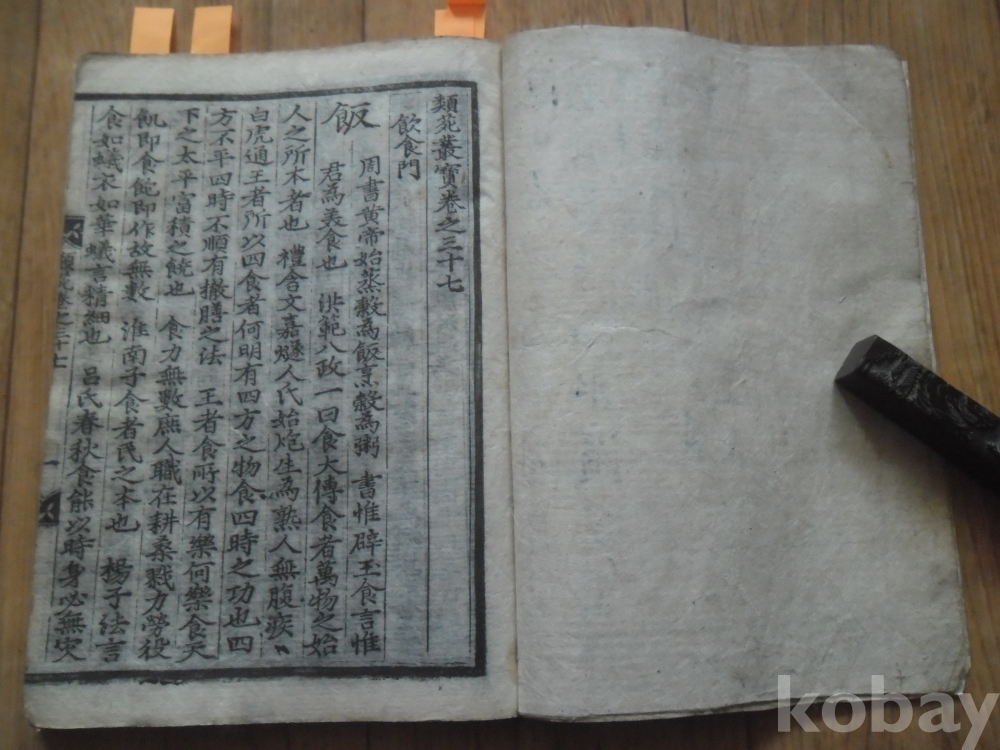 類苑叢寶卷之三十七
飲食門
飯 周書黃帝始蒸穀為飯烹穀為粥 書惟辟玉食言惟
君為美食也 洪範八政一曰食大傳食者萬物之始
人之所本者也 禮含文嘉燧人氏始炮生為熟人無腹疾
白虎通王者所以四食者何明有四方之物食四時之功也四
方不平四時不順有撤膳之法 王者食所以有樂何樂食天
下之太平富積之饒也 食力無數庶人職在耕桑戮力勞役
飢即食飽即作故無數 淮南子食者民之本也 楊子法言
食如蟻衣如華蟻言精細也 呂氏春秋食能以時身必無灾
卷之三十七
一
kobay